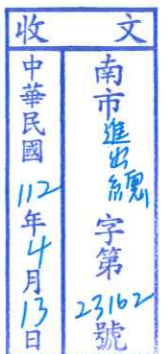 收文
南市進出總字第23162號
中華民國112年4月13日